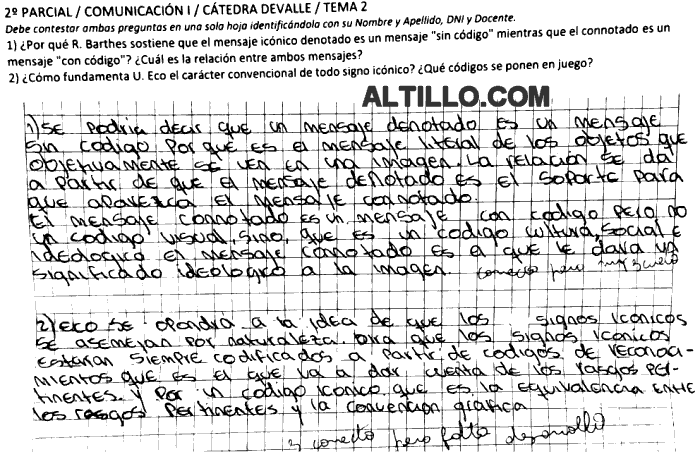 2º PARCIAL / COMUNICACIÓN I / CÁTEDRA DEVALLE / TEMA 2
Debe contestar ambas preguntas en una sola hoja identificándola con su Nombre y Apellido, DNI y Docente.
1) ¿Por qué R. Barthes sostiene que el mensaje icónico denotado es un mensaje "sin código" mientras que el connotado es un
mensaje "con código"? ¿Cuál es la relación entre ambos mensajes?
2) ¿Cómo fundamenta U. Eco el carácter convencional de todo signo icónico? ¿Qué códigos se ponen en juego?
ALTILLO.COM
1) SE podria decir que un mensaje denotado es un mensaje
sin codigo porque es el mensaje literal de los objetos que
objetivamente se ven en una imagen. La relación se da
a partir de que el mensaje denotado es el soporte para
que aparezca el mensaje connotado.
El mensaje connotado es un mensaje con codigo pero no
un codigo visual, sino, que es un codigo cultural, social e
ideologico el mensaje connotado es el que le dara un
significado ideologico a la imagen. correcto pero muy suelto
2) eco se opondra a la idea de que los signos iconicos
se asemejan por naturaleza. Dira que los signos iconicos
estaran siempre codificados a partir de codigos de reconoci-
mientos que es el que va a dar cuenta de los rasgos per-
tinentes. y por un codigo iconico que es la equivalencia entre
los rasgos pertinentes y la convencion grafica
correcto pero falta desarrollo